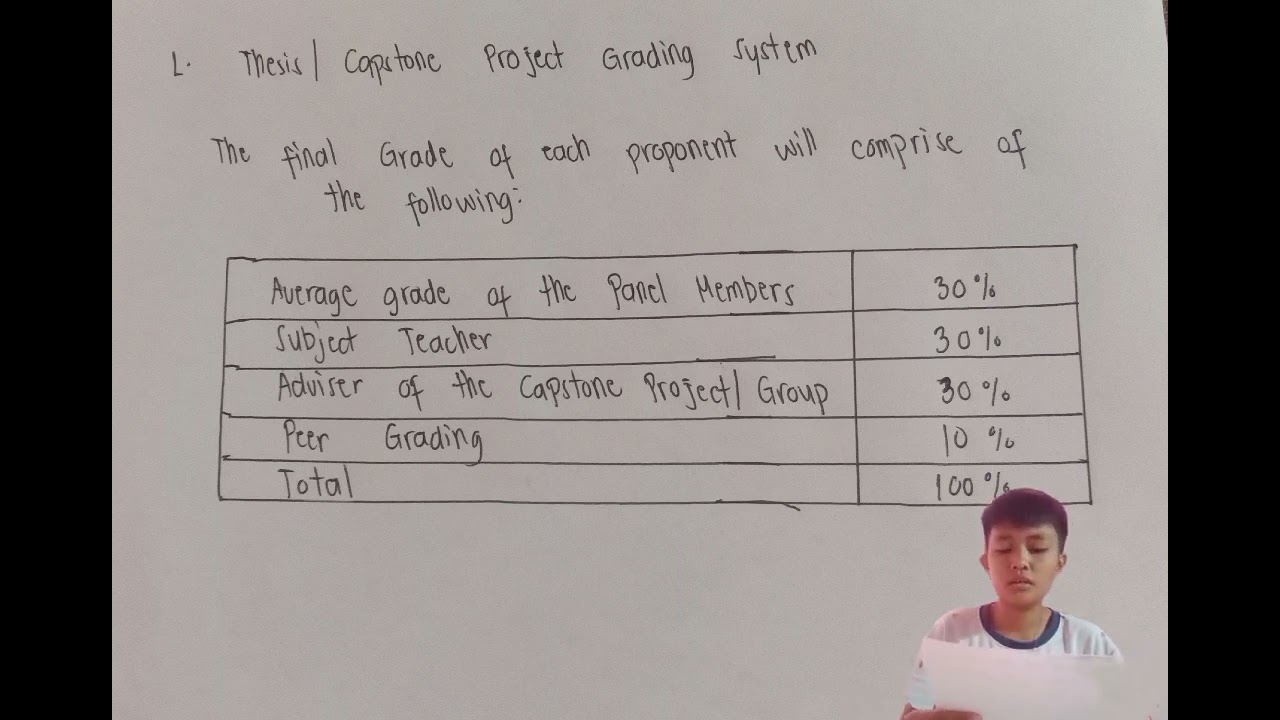 L. Thesis/ Capstone Project Grading System
The final Grade of each proponent will comprise of
the following:
Average grade of the Panel Members 30%
Subject Teacher 30%
Adviser of the Capstone Project/ Group 30%
Peer Grading 10%
Total 100%